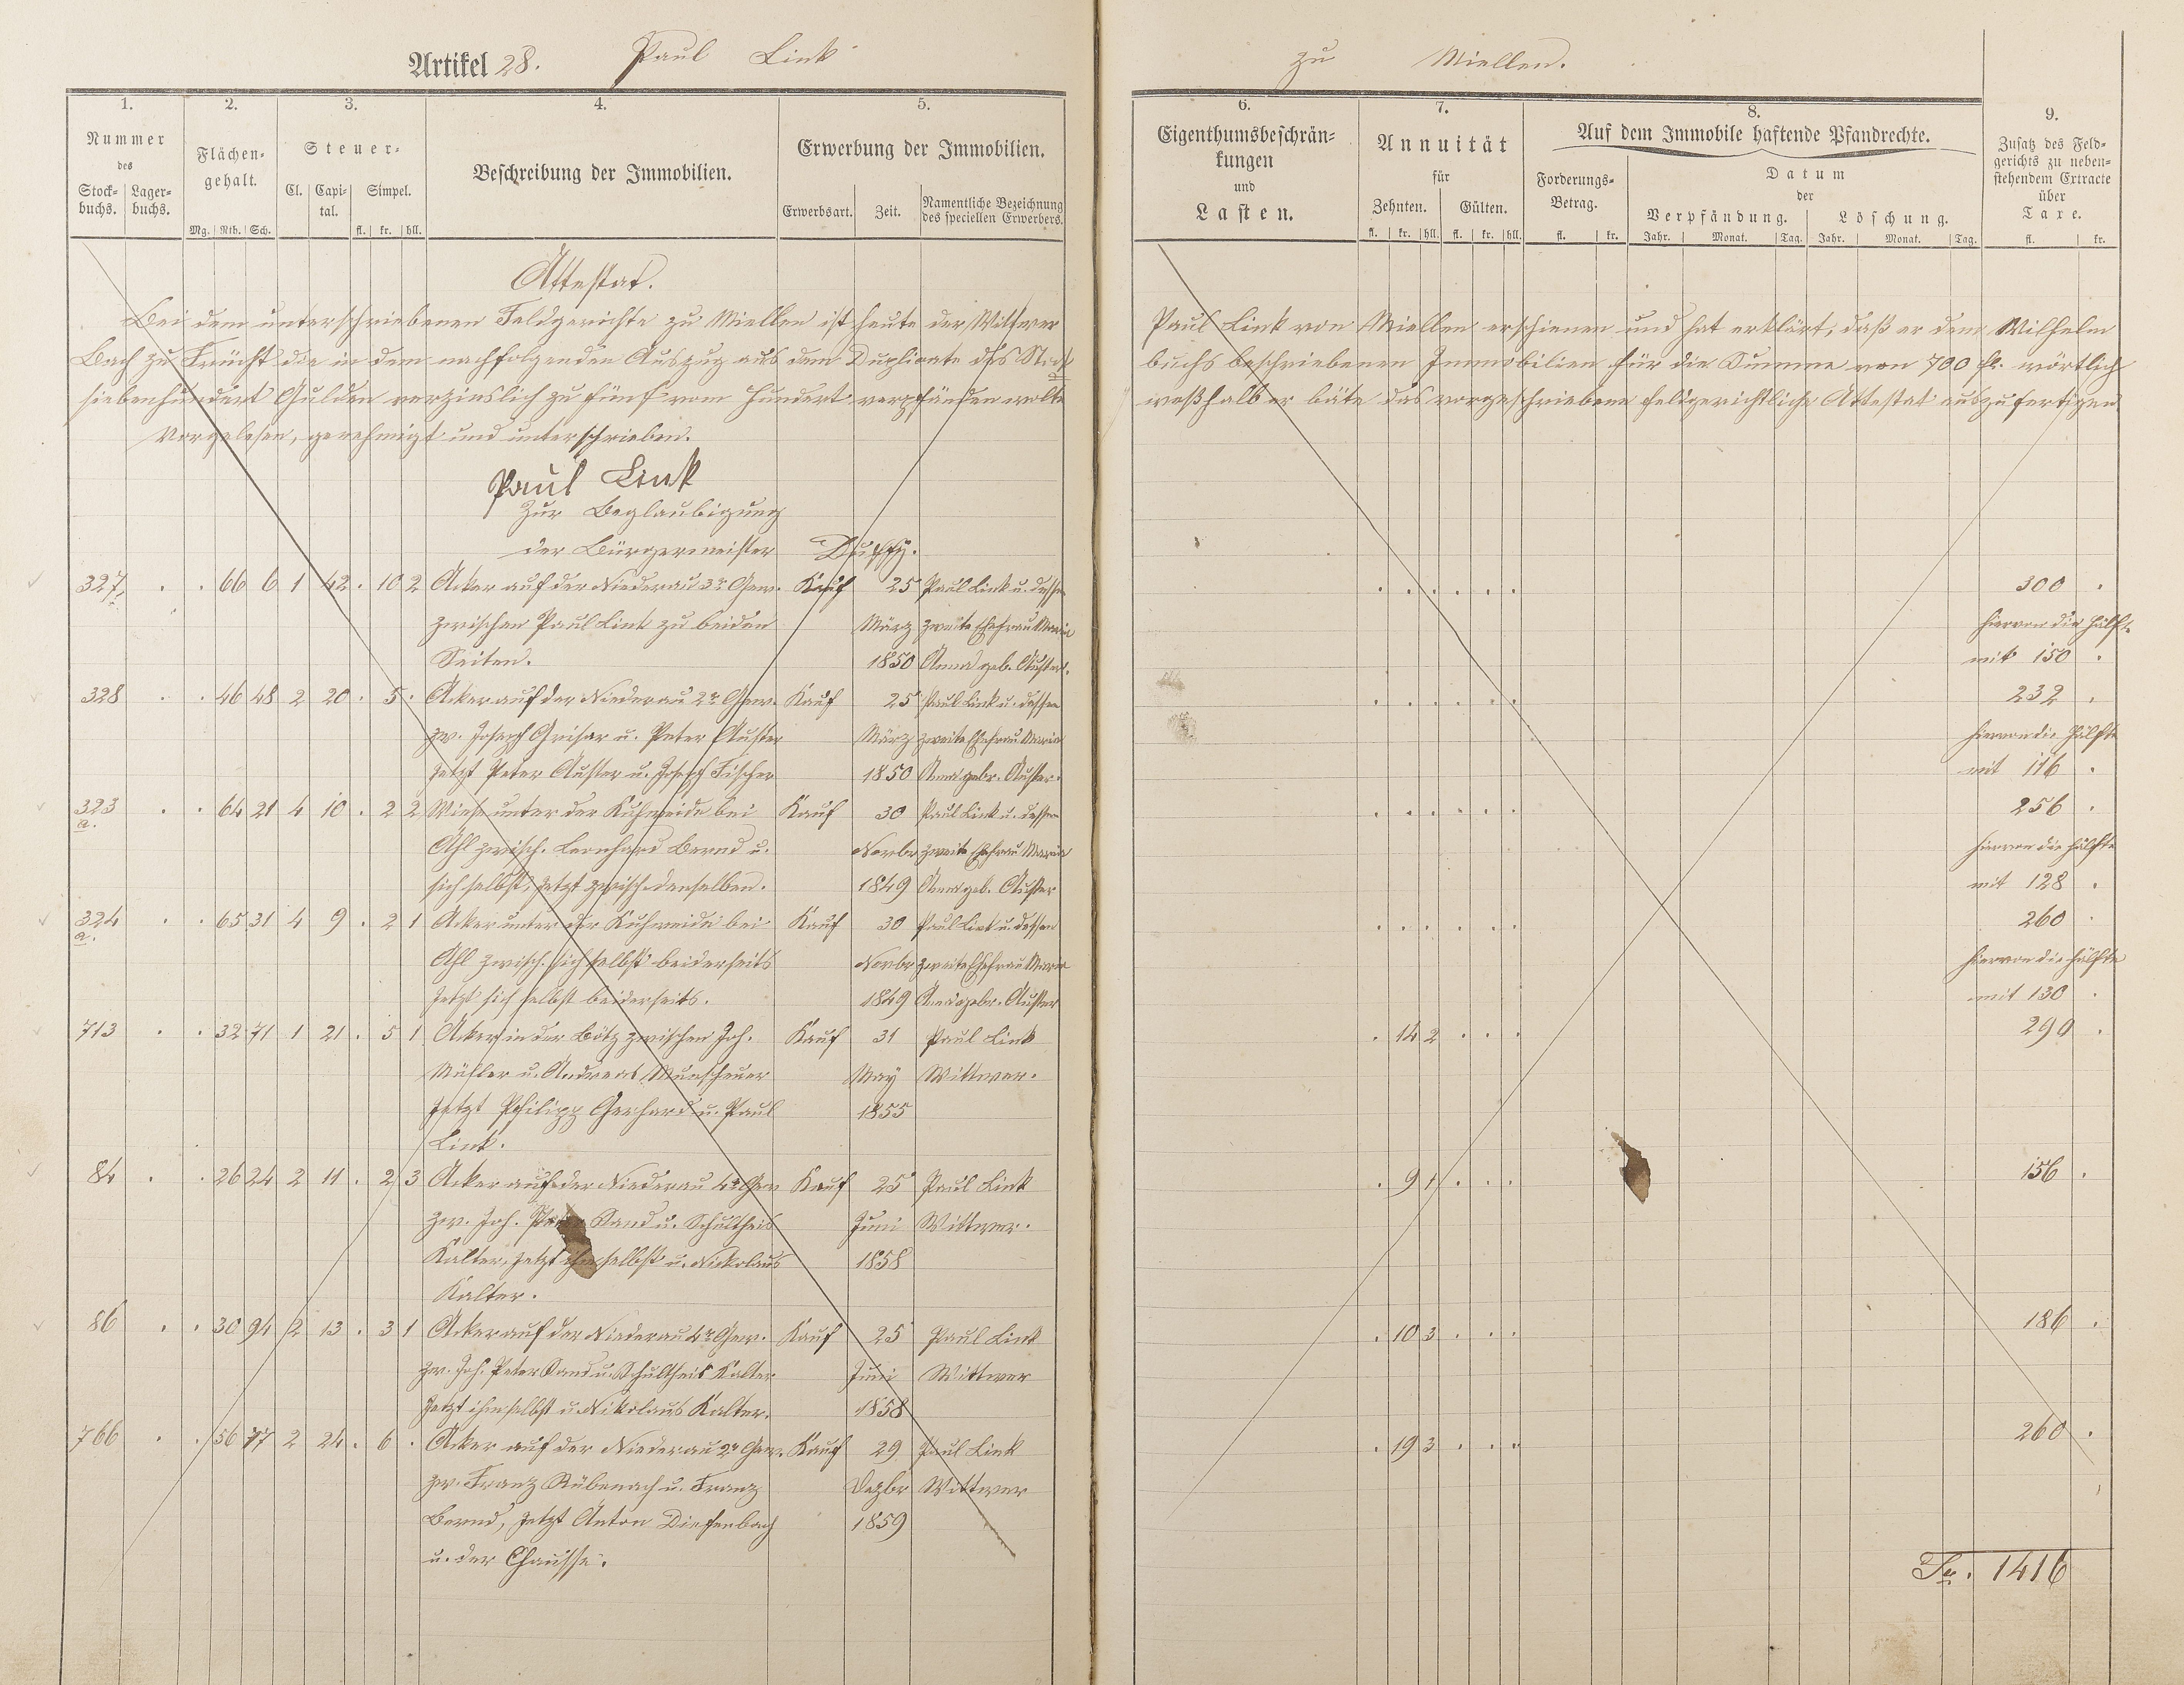 Artikel 28. Paul Link
zu Miellen.
1. 2. 3. 4. 5.
Nummer des
Stock-buchs. Lager-buchs.
Flächen-gehalt.
Mg. Rth. Sch.
Steuer-
Cl. Capi-tal. Simpel.
fl. kr. hll.
Beschreibung der Immobilien.
Erwerbung der Immobilien.
Erwerbsart. Zeit. Namentliche Bezeichnung des speciellen Erwerbers.
6. 7. 8. 9.
Eigenthumsbeschrän-
kungen
und
Lasten.
Annuität
für
Zehnten. Gülten.
fl. kr. hll. fl. kr. hll.
Auf dem Immobile haftende Pfandrechte.
Forderungs-
Betrag.
fl. kr.
Datum
der
Verpfändung. Löschung.
Jahr. Monat. Tag. Jahr. Monat. Tag.
Zusatz des Feld-
gerichts zu neben-
stehendem Extracte
über
Taxe.
fl. kr.
Attestat.
Bei dem unterschriebenen Feldgerichte zu Miellen ist heute der Wittwer Paul Link von Miellen erschienen und hat erklärt, daß er dem Wilhelm
Bach zu Frücht die in dem nachfolgenden Auszug aus dem Duplicate des Stock buchs beschriebenen Immobilien für die Summe von 700 fl. wörtlich
siebenhundert Gulden verzinslich zu fünf vom Hundert verpfänden wolle weßhalb er bäte das vorgeschriebene feldgerichtliche Attestat auszufertigen.
Vorgelesen, genehmigt und unterschrieben.
Paul Link
Zur Beglaubigung
der Bürgermeister
327 . . 66 6 1 42 . 10 2 Acker auf der Niederau 3r Gew. Kauf 25 Paul Link u. dessen . . . . . . 300 .
zwischen Paul Link zu beiden März zweite Ehefrau Maria hiervon die Hälfte
Seiten. 1850 Anna geb. Auster. mit 150 .
328 . . 46 48 2 20 . 5 . Acker auf der Niederau 2r Gew. Kauf 25 Paul Link u. dessen . . . . . . 232 .
zw. Joseph Grisar u. Peter Auster März zweite Ehefrau Maria hiervon die Hälfte
jetzt Peter Auster u. Joseph Fischer 1850 Anna gebr. Auster. mit 116 .
323 a. . . 64 21 4 10 . 2 2 Wiese unter der Kuhweide bei Kauf 30 Paul Link u. dessen . . . . . . 256 .
Ahl zwisch. Leonhard Bernd u. Novbr zweite Ehefrau Maria hiervon die Hälfte
sich selbst, jetzt zwisch denselben. 1849 Anna geb. Auster mit 128 .
324 a. . . 65 31 4 9 . 2 1 Acker unter der Kuhweide bei Kauf 30 Paul Link u. dessen . . . . . . 260 .
Ahl zwisch. sich selbst beiderseits Novbr zweite Ehefrau Maria hiervon die Hälfte
jetzt sich selbst beiderseits. 1849 Anna gebr. Auster mit 130 .
713 . . 32 71 1 21 . 5 1 Acker in der Bötz zwischen Joh. Kauf 31 Paul Link . 14 2 . . . 290 .
Müller u. Andreas Munscheuer May Wittwer.
jetzt Philipp Gerhard u. Paul 1855
Link.
84 . . 26 24 2 11 . 2 3 Acker auf der Niederau 4r Gew Kauf 25 Paul Link . 9 1 . . . 156 .
zw. Joh. Peter Sand u. Schultheis Juni Wittwer.
Kalter, jetzt ihm selbst u. Nickolaus 1858
Kalter.
86 . . 30 94 2 13 . 3 1 Acker auf der Niederau 4r Gew. Kauf 25 Paul Link . 10 3 . . . 186 .
zw. Joh. Peter Sand u. Schultheis Kalter Juni Wittwer
jetzt ihm selbst u. Nikolaus Kalter. 1858
766 . . 56 77 2 24 . 6 . Acker auf der Niederau 2r Gew. Kauf 29 Paul Link . 19 3 . . . 260 .
zw. Franz Rübenach u. Franz Dezbr Wittwer
Bernd, jetzt Anton Diefenbach 1859
u. der Chaussee.
Sa. 1416